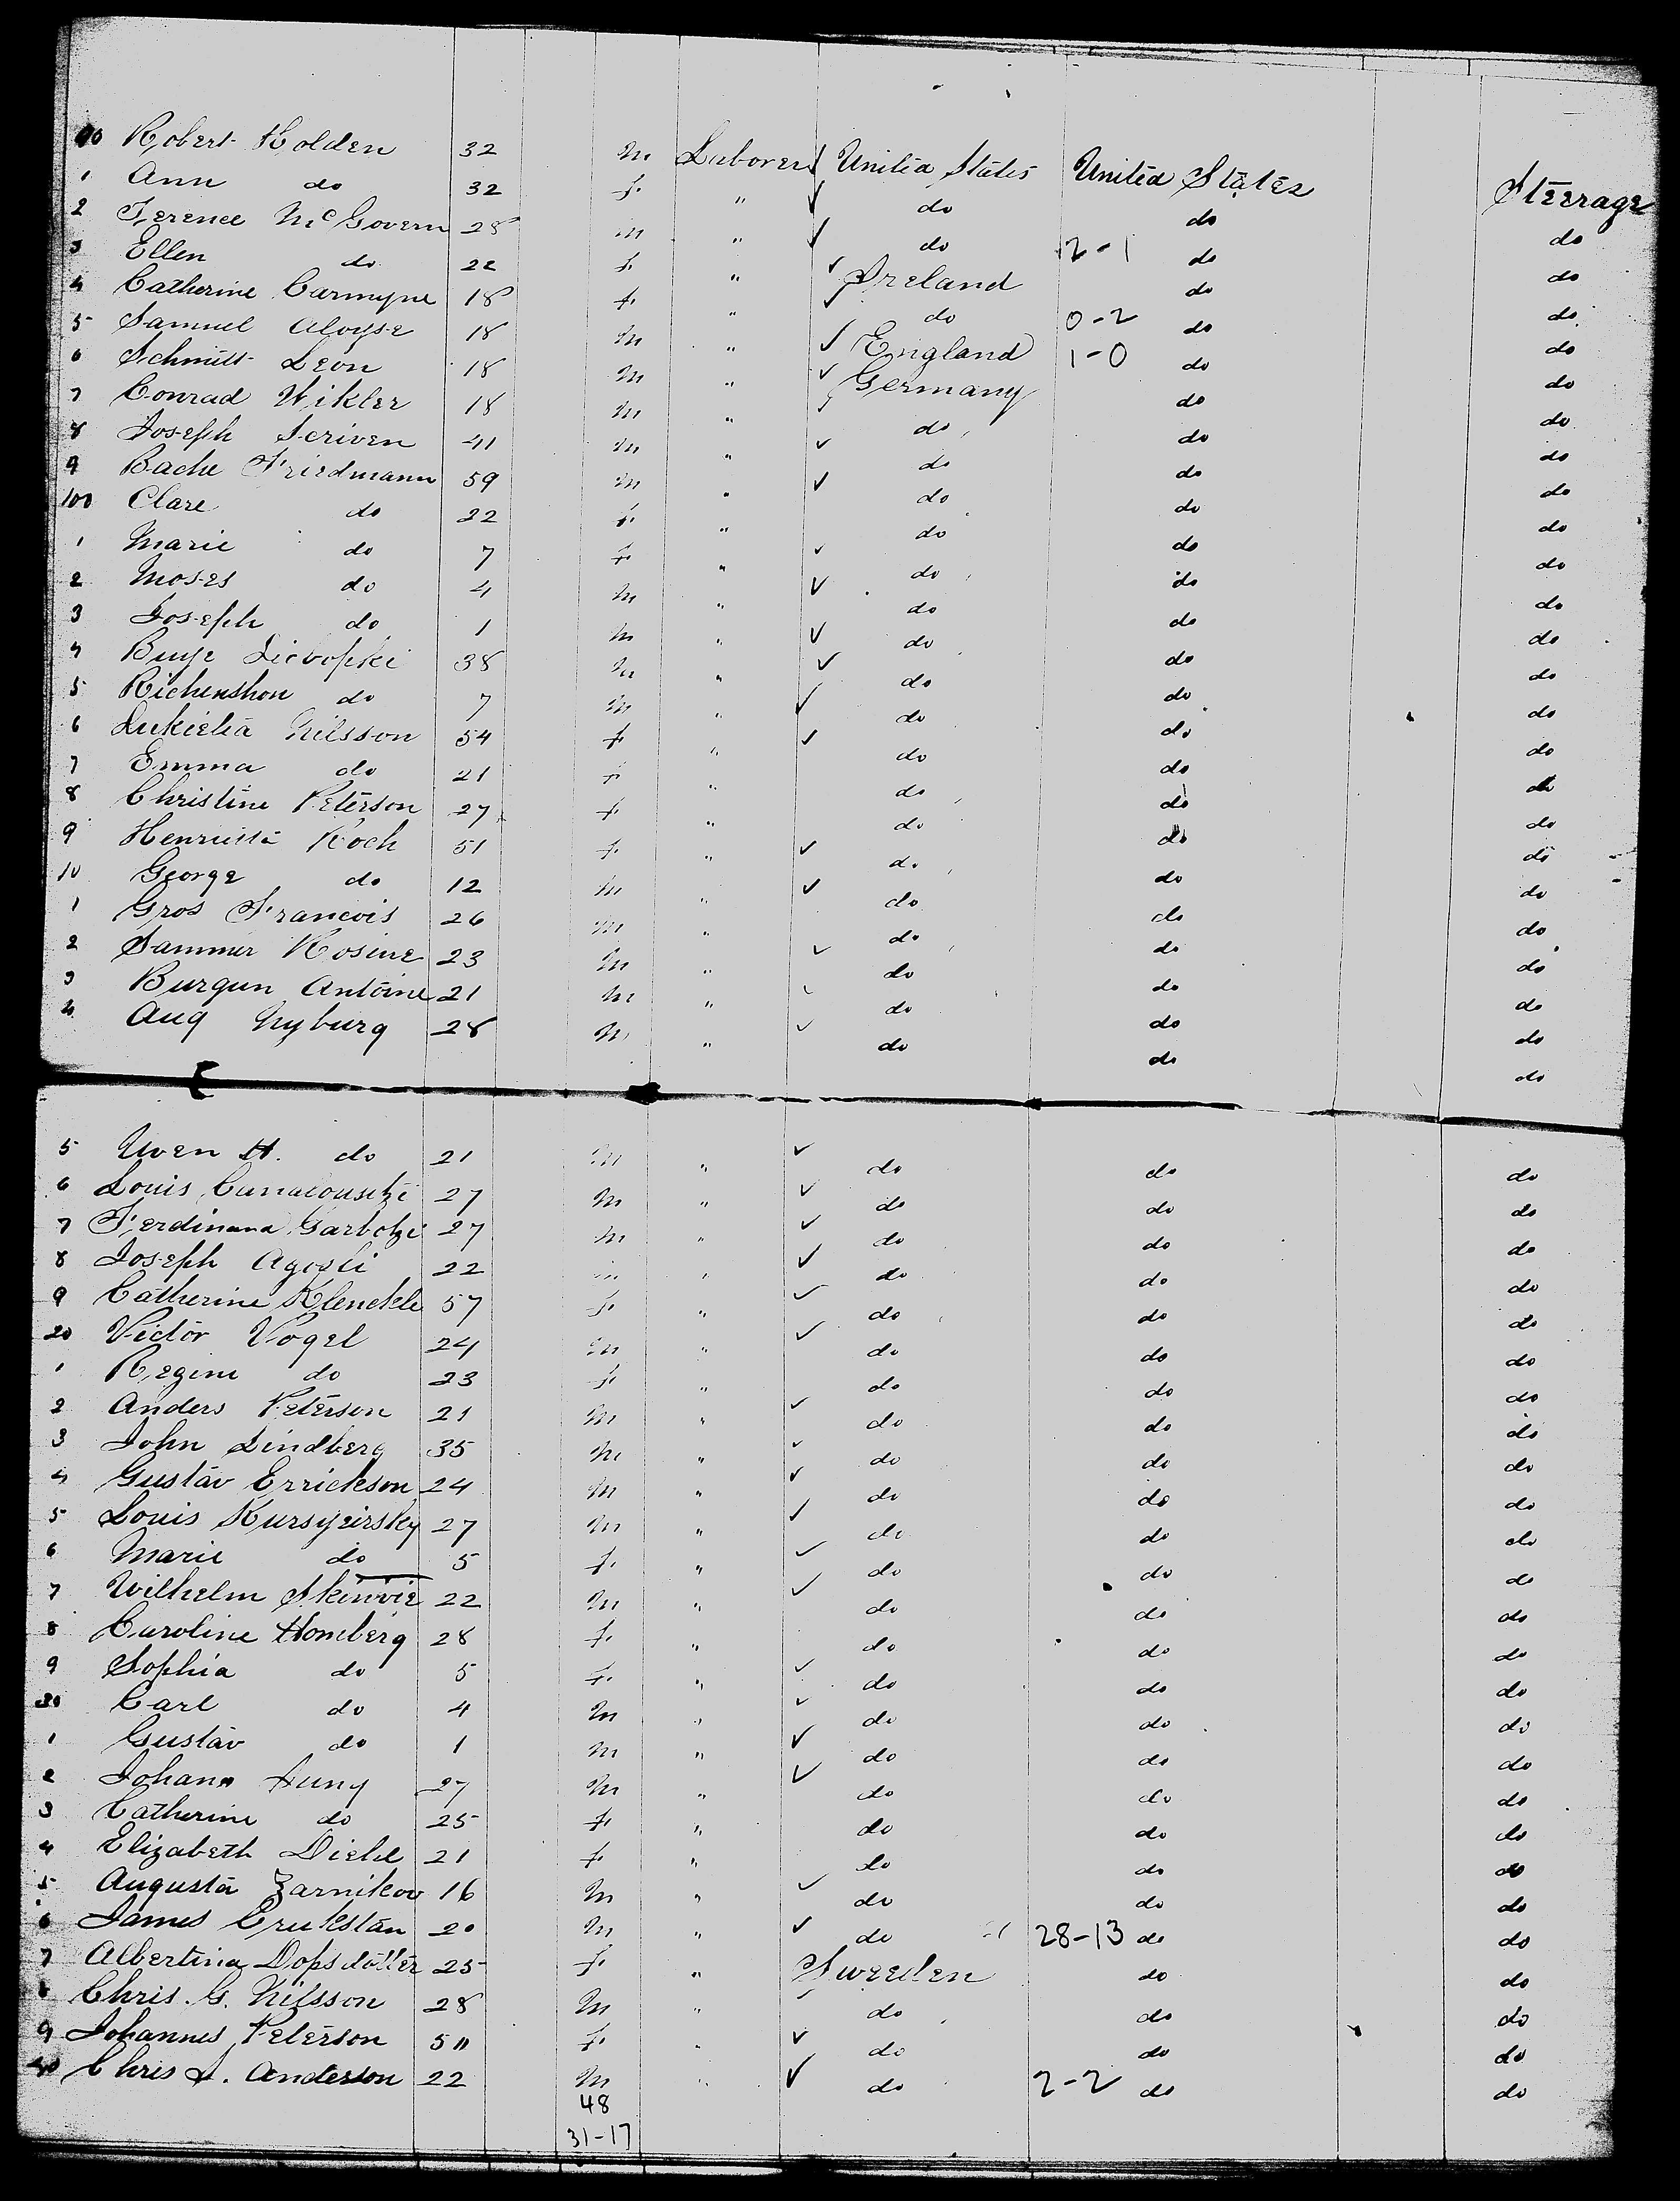 90 Robert Holden 32 m Laborers United States United States Steerage
1 Ann do 32 f. " do do do
2 Terence McGovern 28 m " do 2-1 do do
3 Ellen do 22 f. " Ireland do do
4 Catherine Carmyne 18 f. " do 0-2 do do
5 Samuel Aloyse 18 m " England 1-0 do do
6 Schmitt Leon 18 m " Germany do do
7 Conrad Wikler 18 m " do do do
8 Joseph Scriven 41 m " do do do
9 Bache Friedmann 59 m " do do do
100 Clare do 22 f. " do do do
1 Marie do 7 f. " do do do
2 Moses do 4 m " do do do
3 Joseph do 1 m " do do do
4 38 m " do do do
5 Richenshon do 7 m " do do do
6 Nilsson 54 f " do do do
7 Emma do 21 f " do do do
8 Christine Peterson 27 f. " do do do
9 Henrietta Koch 51 f. " do do do
10 George do 12 m " do do do
1 Gros Francois 26 m " do do do
2 Sammer Rosine 23 m " do do do
3 Burgun Antoine 21 m " do do do
4 Aug Nyburg 28 m " do do do
5 Uven H. do 21 m " do do do
6 Louis 27 m " do do do
7 Ferdinand 27 m " do do do
8 Joseph 22 m " do do do
9 Catherine Klenckle 57 f. " do do do
20 Victor Vogel 24 m " do do do
1 Regine do 23 f. " do do do
2 Anders Peterson 21 m " do do do
3 John Lindberg 35 m " do do do
4 Gustav Errickson 24 m " do do do
5 Louis 27 m " do do do
6 Marie do 5 f. " do do do
7 Wilhelm 22 m " do do do
8 Caroline Homberg 28 f. " do do do
9 Sophia do 5 f. " do do do
30 Carl do 4 m " do do do
1 Gustav do 1 m " do do do
2 Johann Jung 27 m " do do do
3 Catherine do 25 f. " do do do
4 Elizabeth Diehl 21 f. " do do do
5 Augusta Zarnikow 16 m " do do do
6 James 20 m " do 28-13 do do
7 Albertina 25 f. " Sweden do do
8 Chris. G. Nilsson 28 m " do do do
9 Johannes Peterson 50 f. " do do do
40 Chris J. Anderson 22 m " do 2-2 do do
48
31-17